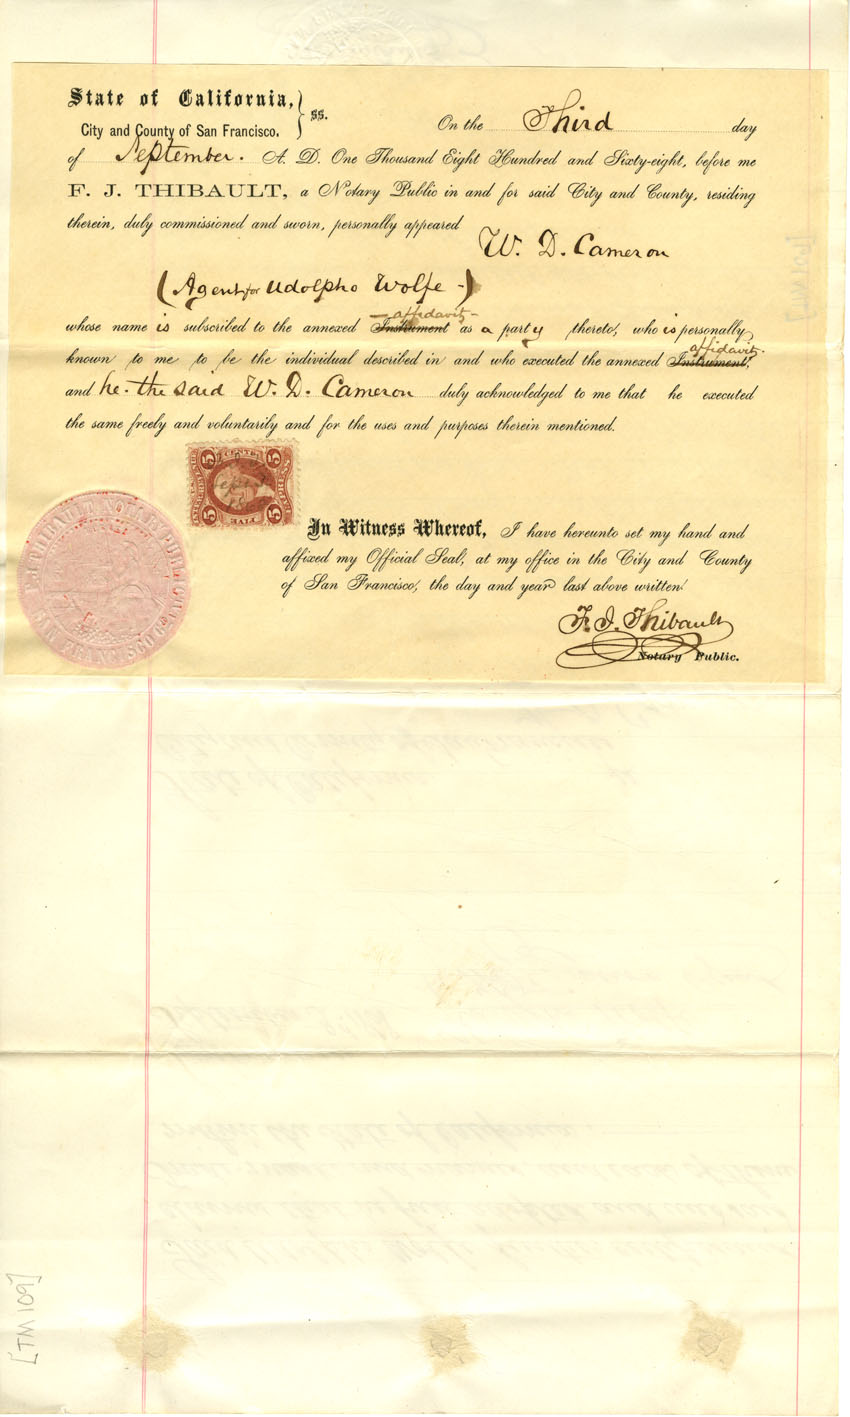 State of California, } ss.
City and County of San Francisco.
On the Third day
of September. A. D. One Thousand Eight Hundred and Sixty-eight, before me
F. J. THIBAULT, a Notary Public in and for said City and County, residing
therein, duly commissioned and sworn, personally appeared
W. D. Cameron
(Agent for Udolpho Wolfe -)
affidavit
whose name is subscribed to the annexed Instrument as a party thereto, who is personally
affidavit.
known to me to be the individual described in and who executed the annexed Instrument,
and he. the said W. D. Cameron duly acknowledged to me that he executed
the same freely and voluntarily and for the uses and purposes therein mentioned.
5 CENTS 5
5 FIVE 5
In Witness Whereof, I have hereunto set my hand and
affixed my Official Seal, at my office in the City and County
of San Francisco, the day and year last above written.
F. J. THIBAULT NOTARY PUBLIC
SAN FRANCISCO
F. J. Thibault
Notary Public.
[TM 109]